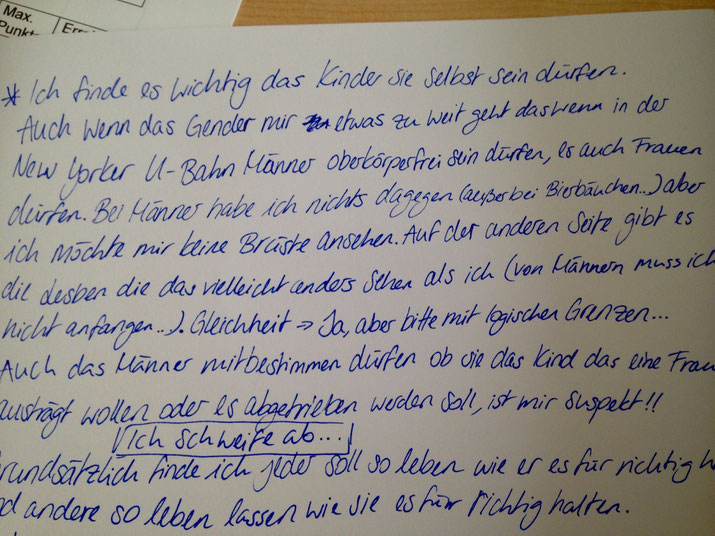 Max.
Punkt
Er
* Ich finde es wichtig das Kinder sie selbst sein dürfen.
Auch wenn das Gender mir etwas zu weit geht das wenn in der
New Yorker U-Bahn Männer oberkörperfrei sein dürfen, es auch Frauen
dürfen. Bei Männer habe ich nichts dagegen (außer bei Bierbäuchen...) aber
ich möchte mir keine Brüste ansehen. Auf der anderen Seite gibt es
die Lesben die das vielleicht anders sehen als ich (von Männern muss ich
nicht anfangen...). Gleichheit → Ja, aber bitte mit logischen Grenzen...
Auch das Männer mitbestimmen dürfen ob sie das Kind das eine Frau
austrägt wollen oder es abgetrieben werden soll, ist mir suspekt!!
Ich schweife ab...
rundsätzlich finde ich jeder soll so leben wie er es für richtig h
d andere so leben lassen wie sie es für richtig halten.